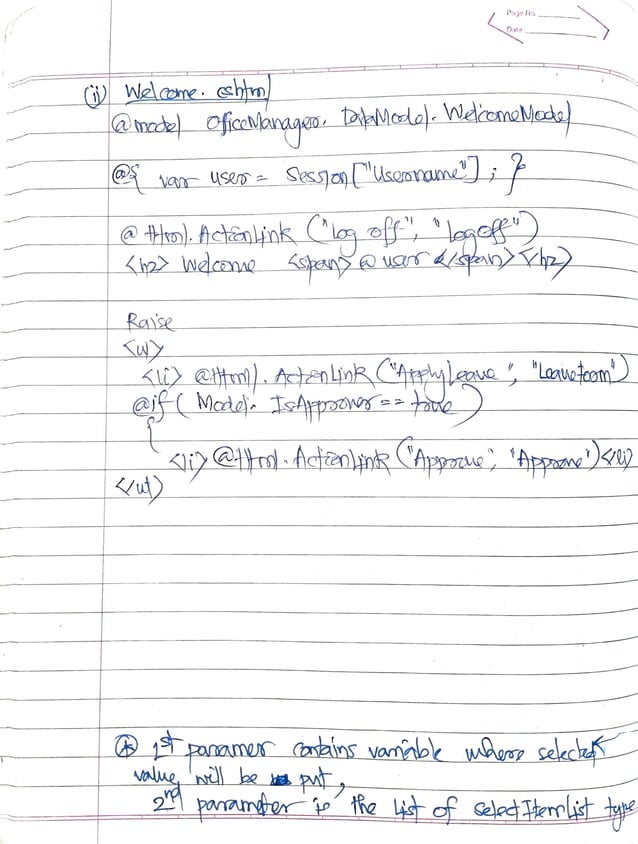 Page No.
Date
(ii) Welcome.cshtml
@model OfficeManager.DataModel.WelcomeModel
@{ var user = Session["Username"]; }
@Html.ActionLink("Log off", "Logoff")
<h2> Welcome <span> @user </span> <h2>
Raise
<ul>
<li> @Html.ActionLink("ApplyLeave", "Leaveform")
@if( Model.IsApprover == true )
{
<li> @Html.ActionLink("Approve", "Approve")</li>
</ul>
* 1st paramer contains variable where selected
value will be put,
2nd paramater is the list of selectItemList type